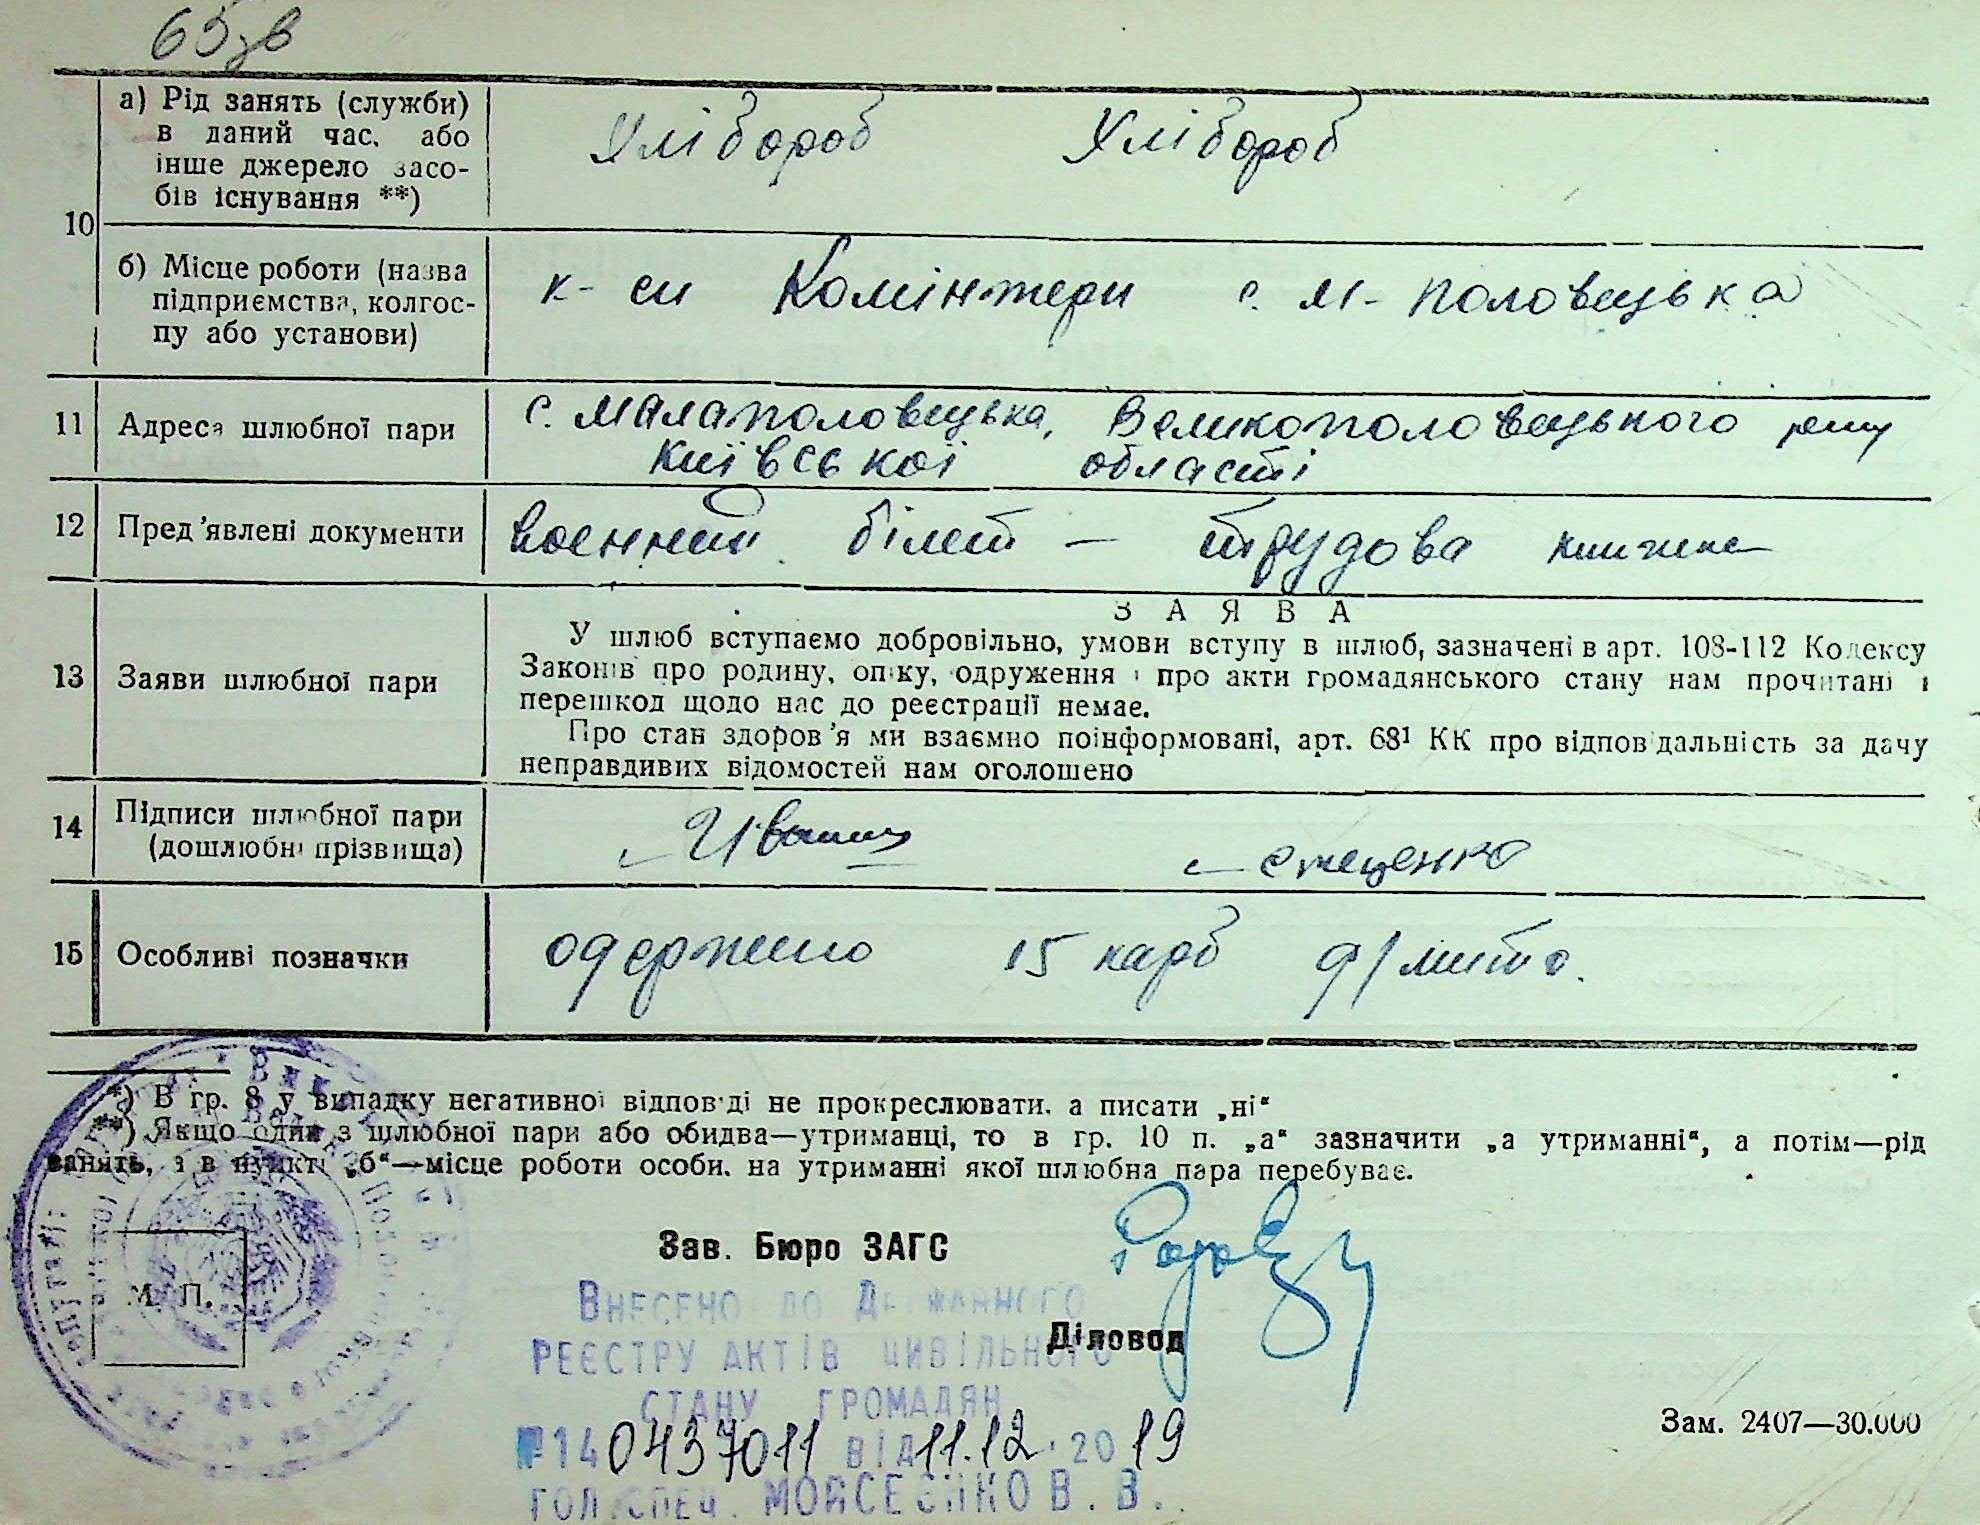 65 зв
а) Рід занять (служби)
в даний час, або
інше джерело засо-
бів існування **)
Хлібороб Хлібороб
10
б) Місце роботи (назва
підприємства, колгос-
пу або установи)
к-си Комінтерн с. М-Половецька
11 Адреса шлюбної пари
с. Малаполовецька, Великополовецького р-ну
Київської області
12 Пред'явлені документи
воєнний білет — трудова книжка
13 Заяви шлюбної пари
ЗАЯВА
У шлюб вступаємо добровільно, умови вступу в шлюб, зазначені в арт. 108-112 Кодексу
Законів про родину, опіку, одруження і про акти громадянського стану нам прочитані і
перешкод щодо нас до реєстрації немає.
Про стан здоров'я ми взаємно поінформовані, арт. 68¹ КК про відповідальність за дачу
неправдивих відомостей нам оголошено
14 Підписи шлюбної пари
(дошлюбні прізвища)
Стеценко
15 Особливі позначки
одержано 15 карб д/мито.
*) В гр. 8 у випадку негативної відповіді не прокреслювати, а писати „ні“
**) Якщо один з шлюбної пари або обидва—утриманці, то в гр. 10 п. „а“ зазначити „а утриманні“, а потім—рід
занять, а в пункті „б“—місце роботи особи, на утриманні якої шлюбна пара перебуває.
М. П.
Зав. Бюро ЗАГС
Діловод
Внесено до Державного
реєстру актів цивільного
стану громадян
№ 140437011 від 11.12.2019
гол. спец. Моисеєнко В. В.
Зам. 2407—30.000